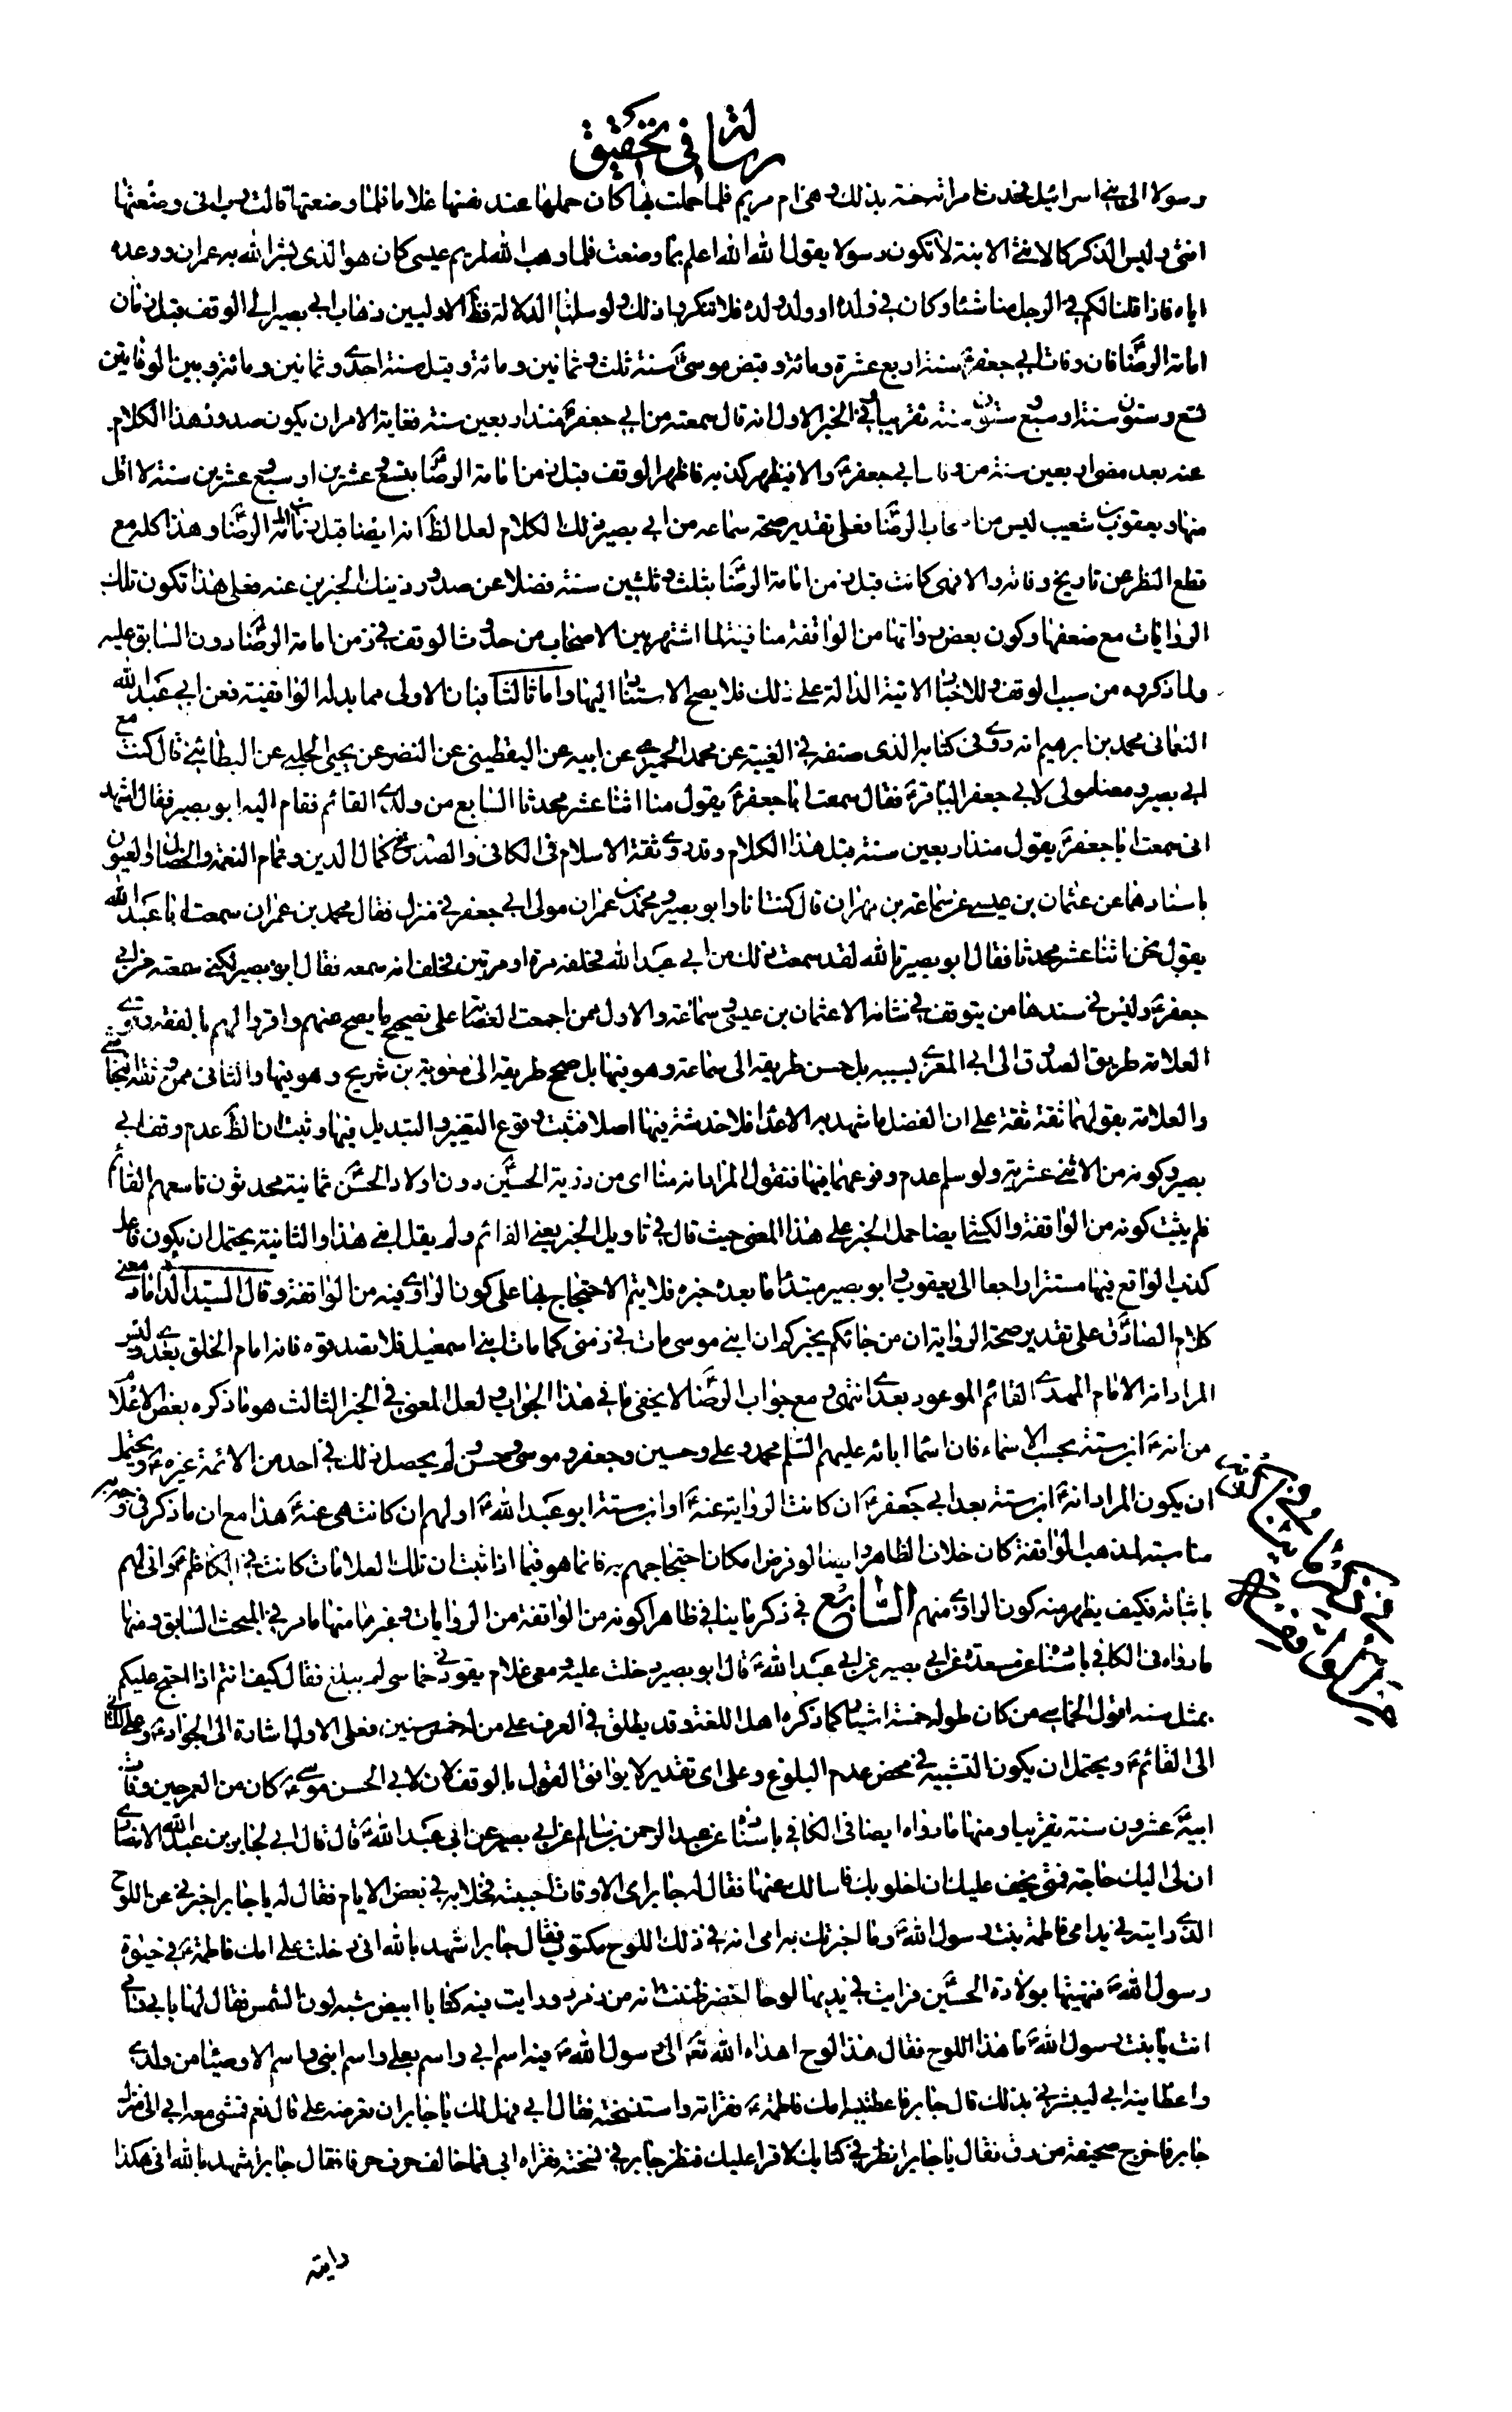 رسالة فی تحقیق
ورسولا الی بنی اسرائیل فحدث امراته حنة بذلك وهی ام مریم فلما حملت بها كان حملها عند نفسها غلاما فلما وضعتها قالت رب انی وضعتها
انثی ولیس الذكر كالانثی الابنة لا تكون رسولا یقول الله الله اعلم بما وضعت فلما وهب الله لمریم عیسی كان هو الذی بشر الله به عمران ووعده
ایاه فاذا قلنا لكم فی الرجل منا شئا وكان فی ولده او ولد ولده فلا تنكروا ذلك ولو سلمنا الدلالة فظ الاولیین ذهاب ابی بصیر الی الوقف قبل زمان
امامة الرضا فان وفات ابی جعفر سنة اربع عشرة ومائة وقبض موسی سنة ثلث وثمانین ومائة وقیل سنة احدی وثمانین ومائة وبین الوفاتین
تسع وستون سنة او سبع ستون سنة تقریبا وفی الخبر الاول انه قال سمعته من ابی جعفر منذ اربعین سنة فغایة الامر ان یكون صدور هذا الكلام
عنه بعد مضی اربعین سنة من وفات ابی جعفر والا فیظهر كذبه فاظهر الوقف قبل زمن امامة الرضا بتسع وعشرین او سبع وعشرین سنة لا اقل
منها ویعقوب بن شعیب لیس من اصحاب الرضا فعلی تقدیر صحة سماعه من ابی بصیر ذلك الكلام لعل الظ انه ایضا قبل زمان امامة الرضا وهذا كله مع
قطع النظر عن تاریخ وفاته والا فهی كانت قبل زمن امامة الرضا بثلث وثلثین سنة فضلا عن صدور ذینك الخبرین عنه فعلی هذا تكون تلك
الروایات مع ضعفها وكون بعض رواتها من الواقفة منافیة لما اشتهر بین الاصحاب من حدوث الوقف فی زمن امامة الرضا دون السابق علیه
ولما ذكروه من سبب الوقف وللاخبار الاتیة الدالة علی ذلك فلا یصح الاستناد الیها واما ثالثا فبان الاولی مما بدله الواقفیة فعن ابی عبد الله
النعمانی محمد بن ابرهیم انه روی فی كتابه الذی صنفه فی الغیبة عن محمد الحمیری عن ابیه عن الیقطینی عن النضر عن یحیی الحلبی عن البطائنی قال كنت مع
ابی بصیر ومعنا مولی لابی جعفر الباقر فقال سمعت ابا جعفر یقول منا اثنا عشر محدثا السابع من ولدی القائم فقام الیه ابو بصیر فقال اشهد
انی سمعت ابا جعفر یقول منذ اربعین سنة قبل هذا الكلام وقد روی ثقة الاسلام فی الكافی والصدوق فی كمال الدین وتمام النعمة والخصال والعیون
باسنادهما عن عثمان بن عیسی عن سماعة بن مهران قال كنت انا وابو بصیر ومحمد بن عمران مولی ابی جعفر فی منزل فقال محمد بن عمران سمعت ابا عبد الله
یقول نحن اثنا عشر محدثا فقال ابو بصیر تالله لقد سمعت ذلك من ابی عبد الله فحلفه مرة او مرتین فحلف انه سمعه فقال ابو بصیر لكنی سمعته من ابی
جعفر ولیس فی سندها من یتوقف فی شانه الا عثمان بن عیسی وسماعة والاول ممن اجمعت العصابة علی تصحیح ما یصح عنهم واقروا لهم بالفقه وقوی
العلامة طریق الصدوق الی ابی المغرا بسببه بل حسن طریقه الی سماعة وهو فیها بل صحح طریقه الی معویة بن شریح وهو فیها والثانی ممن وثقه النجاشی
والعلامة بقولهما ثقة ثقة علی ان الفضل ما شهد به الاعداء فلا خدشة فیها اصلا فثبت وقوع التغیر والتبدیل فیها وثبت ان الظ عدم وقف ابی
بصیر وكونه من الاثنی عشریة ولو سلم عدم وقوعهما فیها فنقول المراد انه منا ای من ذریة الحسین دون اولاد الحسن ثمانیة محدثون تاسعهم القائم
فلم یثبت كونه من الواقفة والكشی ایضا حمل الخبر علی هذا المعنی حیث قال فی تاویل الخبر یعنی القائم ولم یقل ابنی هذا والثانیة یحتمل ان یكون فاعل
كذب الواقع فیها مستترا راجعا الی یعقوب وابو بصیر مبتدا ما بعده خبره فلا یتم الاحتجاج بها علی كون الراوی فیه من الواقفة وقال السید الداماد معنی
كلام الصادق علی تقدیر صحة الروایة ان من جائكم یخبركم ان ابنی موسی مات فی زمنی كما مات ابنی اسمعیل فلا تصدقوه فانه امام الخلق بعدی ولیس
المراد انه الامام المهدی القائم الموعود بعدی انتهی ومع جواب الرضا لا یخفی ما فی هذا الجواب ولعل المعنی فی الخبر الثالث هو ما ذكره بعض الاعلام
من انه ابن ستة بحسب الاسماء فان اسماء ابائه علیهم السلم محمد وعلی وحسین وجعفر وموسی وحسن ولم یحصل ذلك فی احد من الائمة غیره ویحتمل
ان یكون المراد انه ابن ستة بعد ابی جعفر ان كانت الروایة عنه او ابن ستة ابو عبد الله اولهم ان كانت هی عنه هذا مع ان ما ذكر فی وجه
مناسبته لمذهب الواقفة كان خلاف الظاهر وایضا لو فرض امكان احتجاجهم به فانما هو فیما اذا ثبت ان تلك العلامات كانت فی الكاظم وانی لهم
باثباته فكیف یظهر منه كون الراوی منهم السابع فی ذكر ما ینافی ظاهرا كونه من الواقفة من الروایات وغیرها منها ما مر فی المبحث السابق ومنها
ما رواه فی الكافی باسناده عن مسعدة عن ابی بصیر عن ابی عبد الله قال ابو بصیر دخلت علیه ومعی غلام یقودنی خماسی لم یبلغ فقال كیف انتم اذا احتج علیكم
بمثل سنه اقول الخماسی من كان طوله خمسة اشبار كما ذكره اهل اللغة وقد یطلق فی العرف علی من له خمس سنین فعلی الاول اشارة الی الجواد وعلی الثانی
الی القائم ویحتمل ان یكون التشبیه فی محض عدم البلوغ وعلی ای تقدیر لا یوافق القول بالوقف لان لابی الحسن موسی كان من العمر حین وفات
ابیه عشرون سنة تقریبا ومنها ما رواه ایضا فی الكافی باسناده عن عبد الرحمن بن سالم عن ابی بصیر عن ابی عبد الله قال قال ابی لجابر بن عبد الله الانصاری
ان لی الیك حاجة فمتی یخف علیك ان اخلو بك فاسالك عنها فقال له جابر ای الاوقات احببته فخلا به فی بعض الایام فقال له یا جابر اخبرنی عن اللوح
الذی رایته فی ید امی فاطمة بنت رسول الله وما اخبرتك به امی انه فی ذلك اللوح مكتوب فقال جابر اشهد بالله انی دخلت علی امك فاطمة فی حیوة
رسول الله فهنیتها بولادة الحسین فرایت فی یدیها لوحا اخضر ظننت انه من زمرد ورایت فیه كتابا ابیض شبه لون الشمس فقال لها بابی وامی
انت یا بنت رسول الله ما هذا اللوح فقال هذا لوح اهداه الله تع الی رسول الله فیه اسم ابی واسم بعلی واسم ابنی واسم الاوصیاء من ولدی
واعطانیه ابی لیبشرنی بذلك قال جابر فاعطتنیه امك فاطمة فقراته واستنسخته فقال ابی فهل لك یا جابر ان تعرضه علی قال نعم فمشی معه ابی الی منزل
جابر فاخرج صحیفة من رق فقال یا جابر انظر فی كتابك لاقرا علیك فنظر جابر فی نسخته فقراه ابی فما خالف حرف حرفا فقال جابر اشهد بالله انی هكذا
رایته